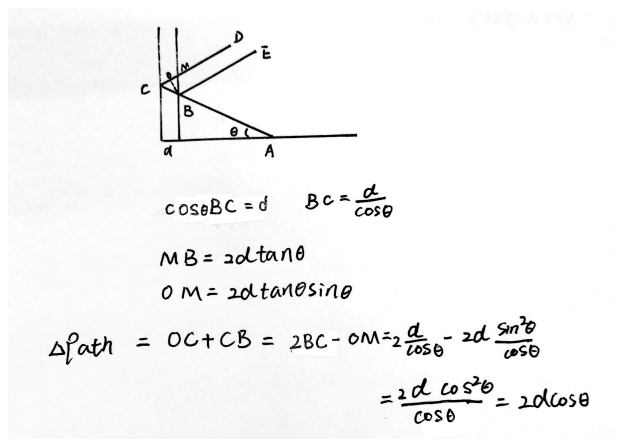 D
E
M
O
C
B
θ
d
A
cosθBC = d    BC = d/cosθ
MB = 2dtanθ
OM = 2dtanθsinθ
ΔPath = OC+CB = 2BC - OM = 2 d/cosθ - 2d sin²θ/cosθ
= 2d cos²θ/cosθ = 2dcosθ